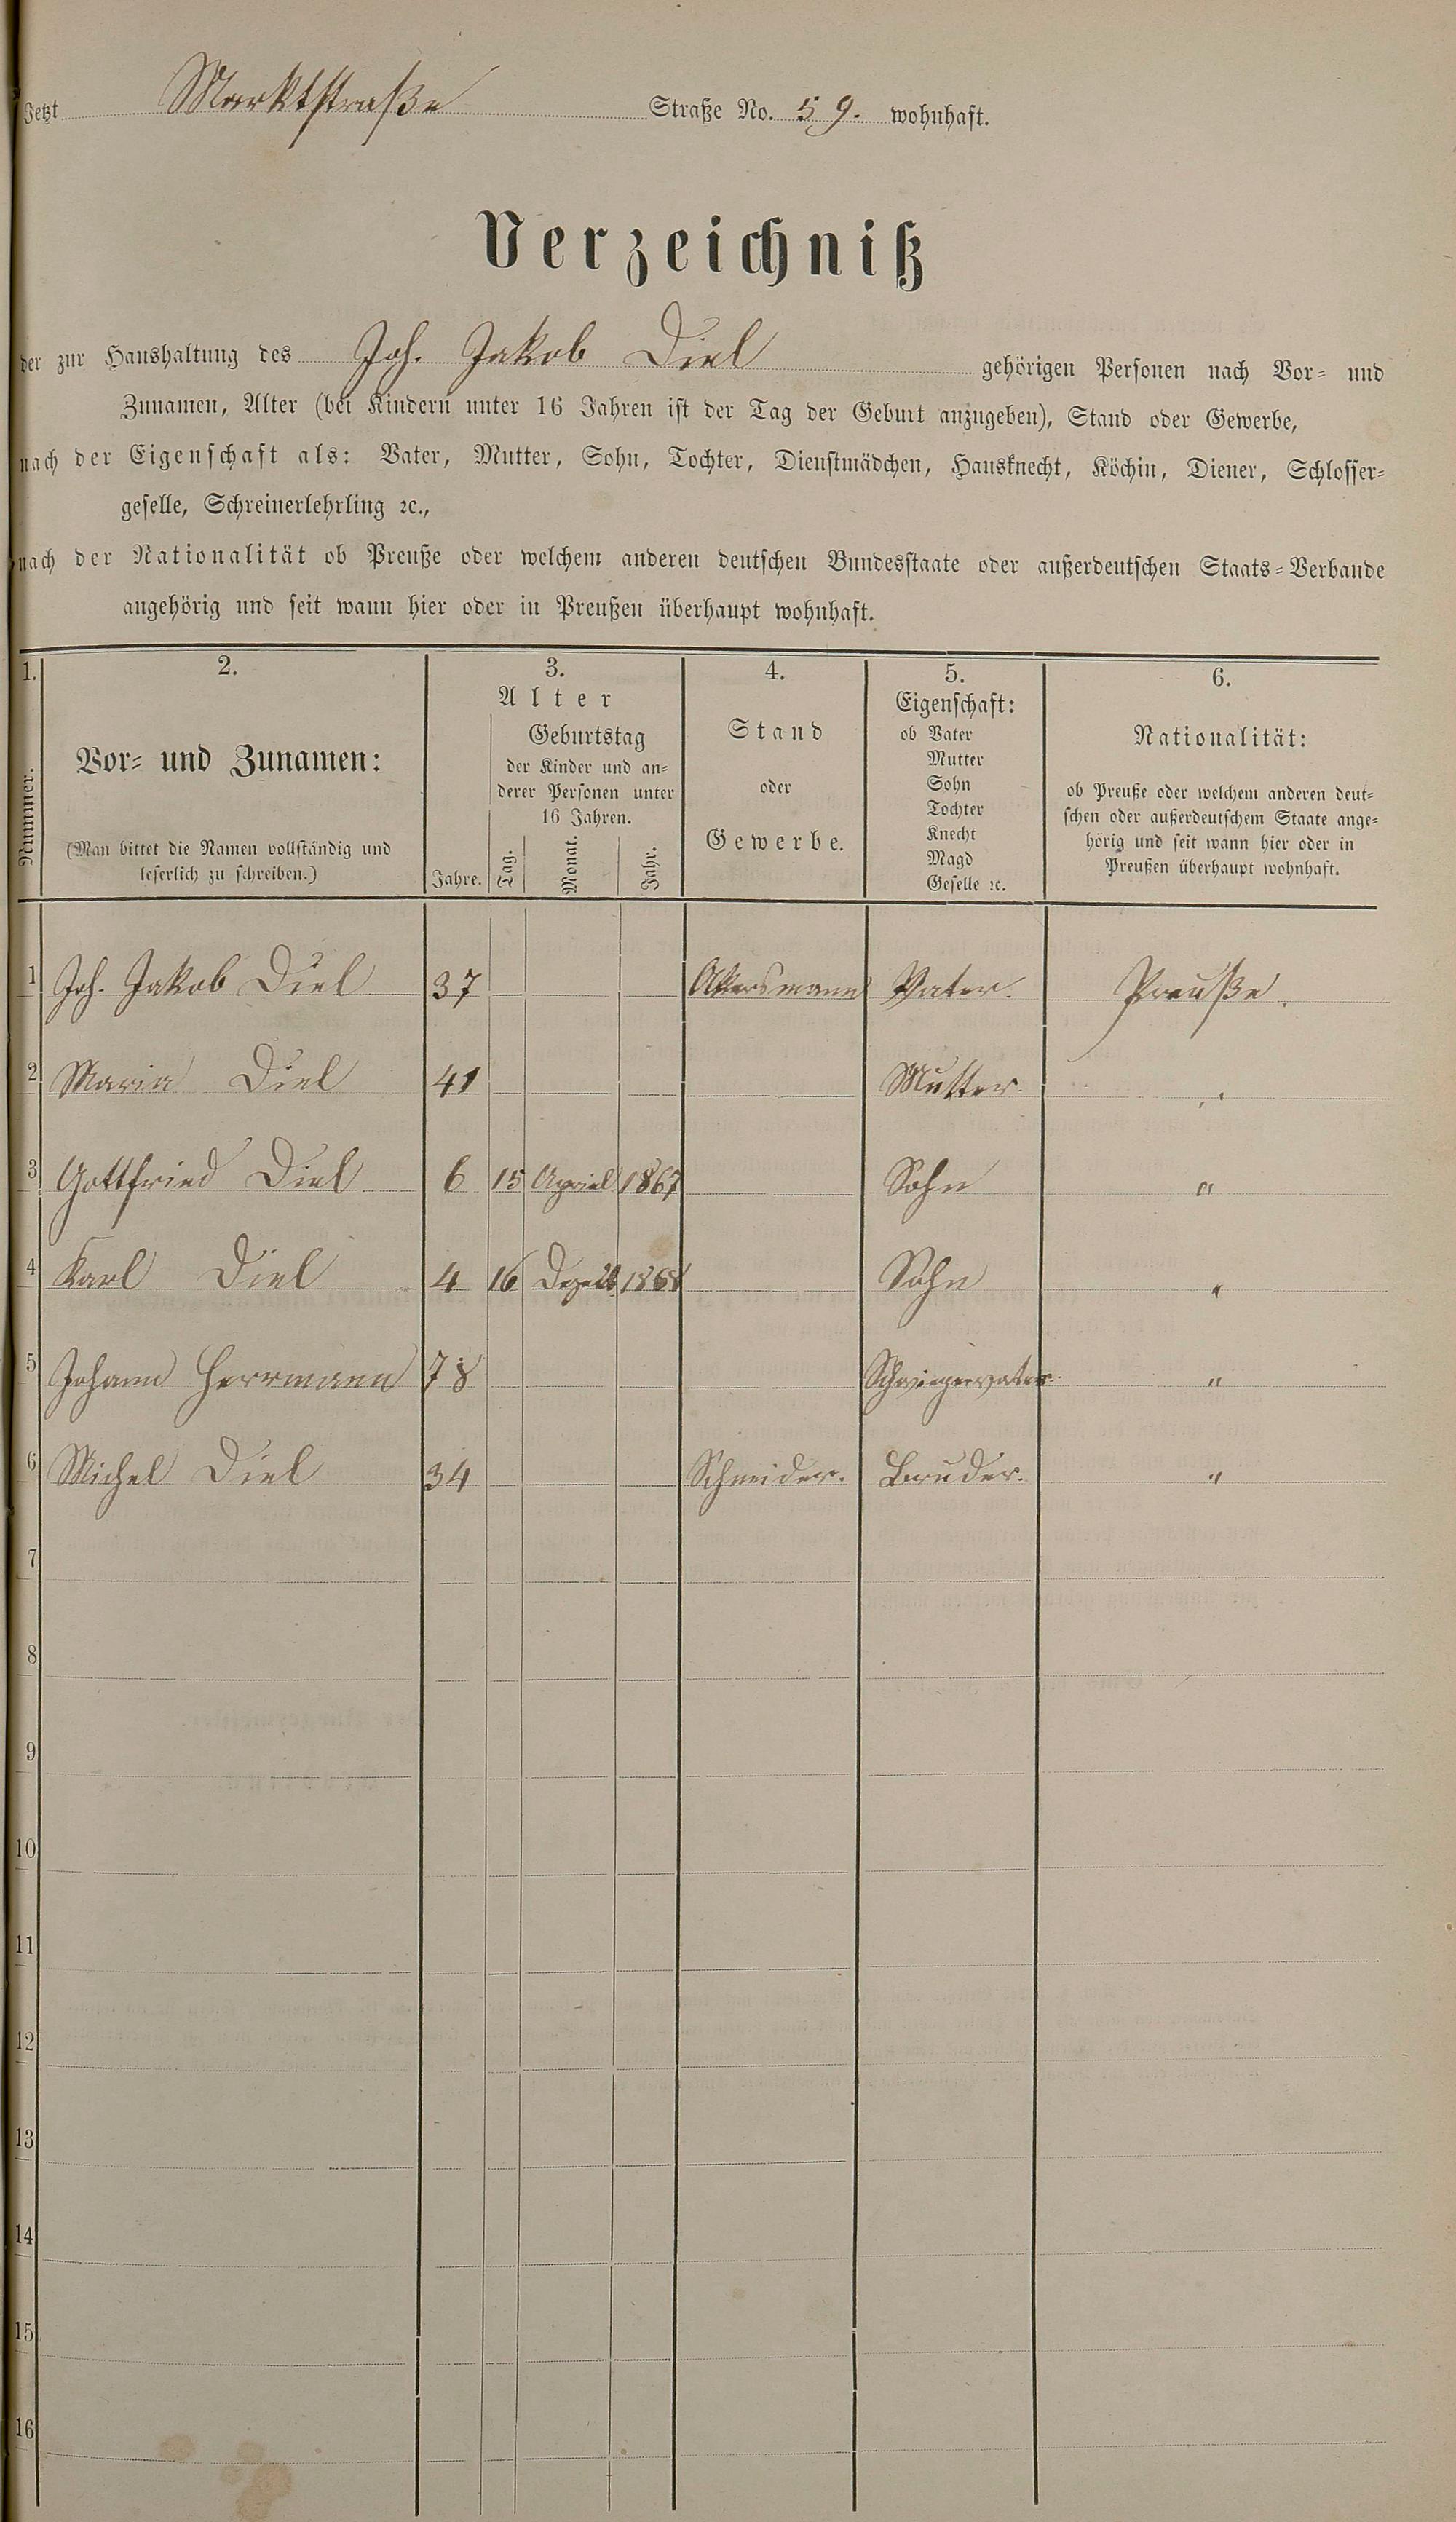 Jetzt Marktstraße Straße No. 59. wohnhaft.
Verzeichniß
der zur Haushaltung des Joh. Jakob Diel gehörigen Personen nach Vor- und
Zunamen, Alter (bei Kindern unter 16 Jahren ist der Tag der Geburt anzugeben), Stand oder Gewerbe,
nach der Eigenschaft als: Vater, Mutter, Sohn, Tochter, Dienstmädchen, Hausknecht, Köchin, Diener, Schlosser-
geselle, Schreinerlehrling ꝛc.,
nach der Nationalität ob Preuße oder welchem anderen deutschen Bundesstaate oder außerdeutschen Staats-Verbande
angehörig und seit wann hier oder in Preußen überhaupt wohnhaft.
1.
Nummer.
2.
Vor- und Zunamen:
(Man bittet die Namen vollständig und
leserlich zu schreiben.)
3.
Alter
Jahre.
Geburtstag
der Kinder und an-
derer Personen unter
16 Jahren.
Tag.
Monat.
Jahr.
4.
Stand
oder
Gewerbe.
5.
Eigenschaft:
ob Vater
Mutter
Sohn
Tochter
Knecht
Magd
Geselle ꝛc.
6.
Nationalität:
ob Preuße oder welchem anderen deut-
schen oder außerdeutschem Staate ange-
hörig und seit wann hier oder in
Preußen überhaupt wohnhaft.
1 Joh. Jakob Diel 37 Akersmann Vater. Preuße.
2 Maria Diel 41 Mutter. "
3 Gottfried Diel 6 15 Apriel 1867 Sohn "
4 Karl Diel 4 16 1868 Sohn "
5 Johann Herrmann 78 Schwiegervater "
6 Michel Diel 34 Schneider. Bruder. "
7
8
9
10
11
12
13
14
15
16